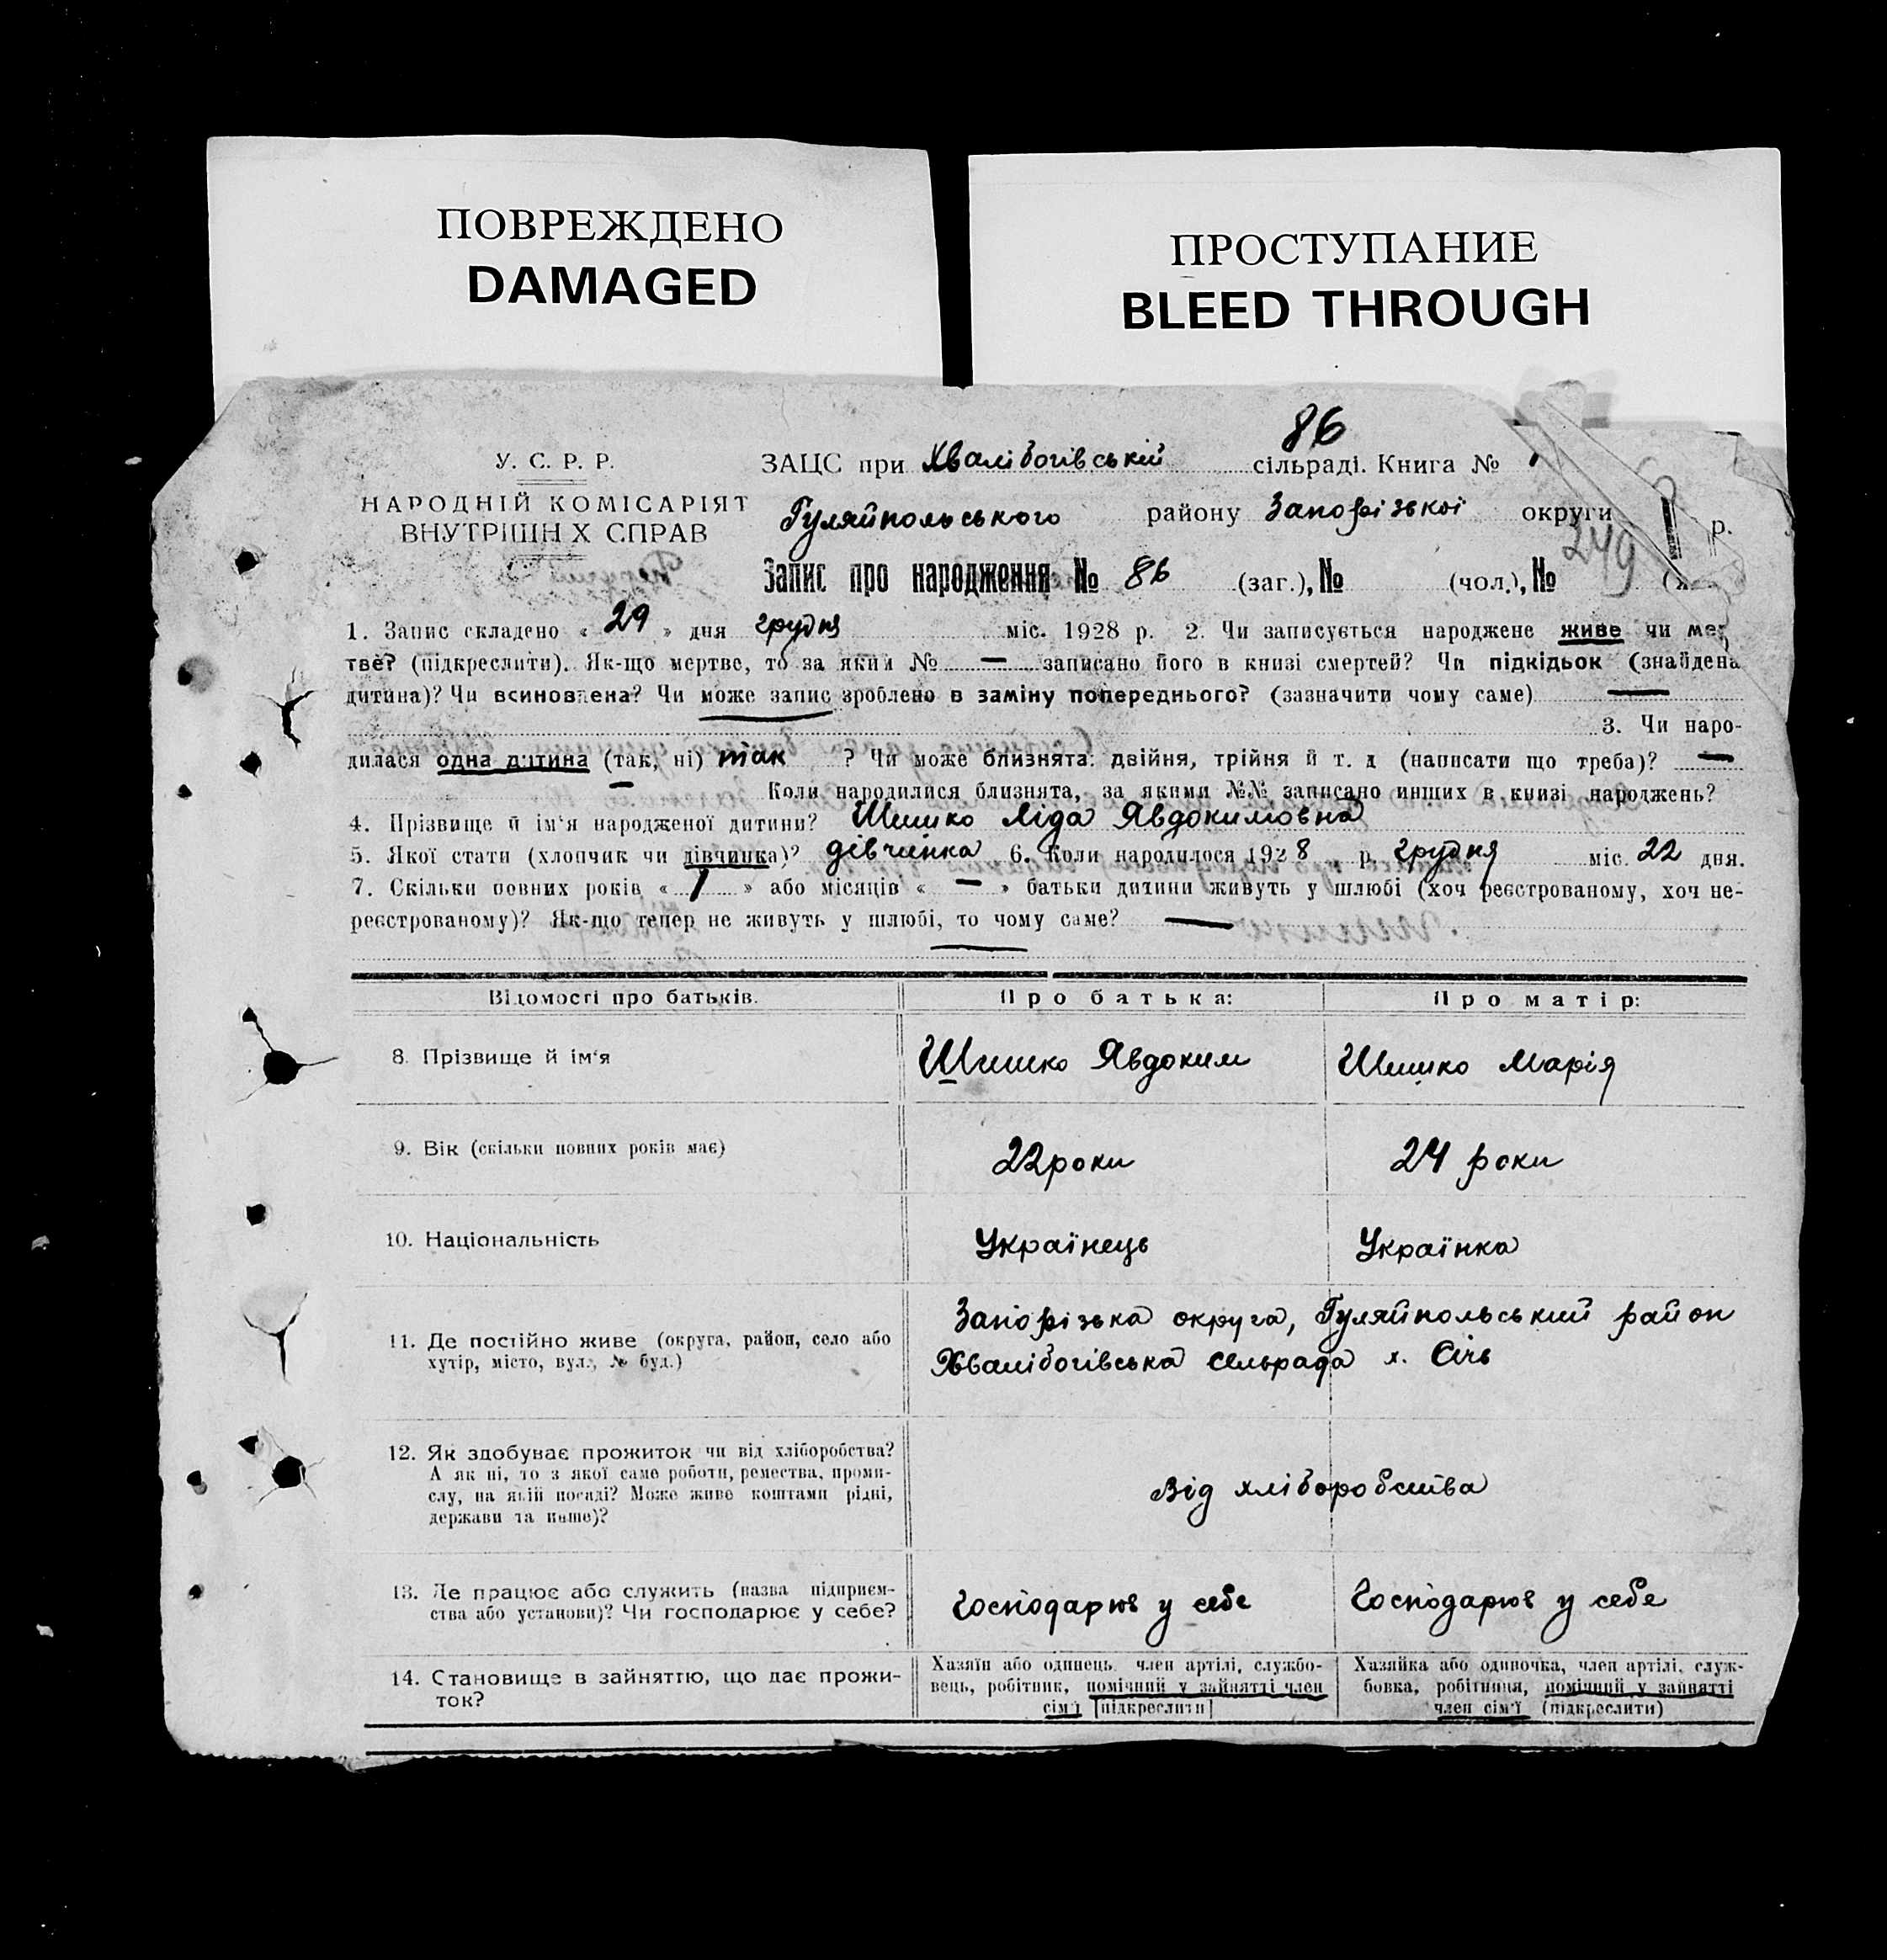 ПОВРЕЖДЕНО
DAMAGED
ПРОСТУПАНИЕ
BLEED THROUGH
86
У. С. Р. Р.
ЗАЦС при Хвалібогівській сільраді. Книга №
НАРОДНІЙ КОМІСАРІЯТ
ВНУТРІШН Х СПРАВ
Гуляйпольського району Запорізької округи р.
249
Запис про народження № 86 (заг.), № (чол.), №
1. Запис складено « 29 » дня грудня міс. 1928 р. 2. Чи записується народжене живе чи мер-
тве? (підкреслити). Як-що мертве, то за яким № — записано його в книзі смертей? Чи підкідьок (знайдена
дитина)? Чи всиновлена? Чи може запис зроблено в заміну попереднього? (зазначити чому саме) —
3. Чи наро-
дилася одна дитина (так, ні) так ? Чи може близнята: двійня, трійня й т. д (написати що треба)? —
— Коли народилися близнята, за якими №№ записано инших в книзі народжень?
4. Прізвище й ім'я народженої дитини? Шишко Ліда Явдокимовна
5. Якої стати (хлопчик чи дівчинка)? дівчинка 6. Коли народилося 1928 р. грудня міс. 22 дня.
7. Скільки повних років « 1 » або місяців « — » батьки дитини живуть у шлюбі (хоч реєстрованому, хоч не-
реєстрованому)? Як-що тепер не живуть у шлюбі, то чому саме? —
Відомості про батьків. Про батька: Про матір:
8. Прізвище й ім'я Шишко Явдоким Шишко Марія
9. Вік (скільки повних років має) 22 роки 24 роки
10. Національність Українець Українка
11. Де постійно живе (округа, район, село або
хутір, місто, вул., № буд.)
Запорізька округа, Гуляйпольський район
Хвалібогівська сельрада х. Січь
12. Як здобуває прожиток чи від хліборобства?
А як ні, то з якої саме роботи, ремества, проми-
слу, на якій посаді? Може живе коштами рідні,
держави та инше)?
Від хліборобства
13. Де працює або служить (назва підприєм-
ства або установи)? Чи господарює у себе?
Господарює у себе Господарює у себе
14. Становище в зайняттю, що дає прожи-
ток?
Хазяїн або одинець, член артілі, службо-
вець, робітник, помічний у зайнятті член
сім'ї [підкреслити]
Хазяйка або одиночка, член артілі, служ-
бовка, робітниця, помічний у зайнятті
член сім'ї (підкреслити)